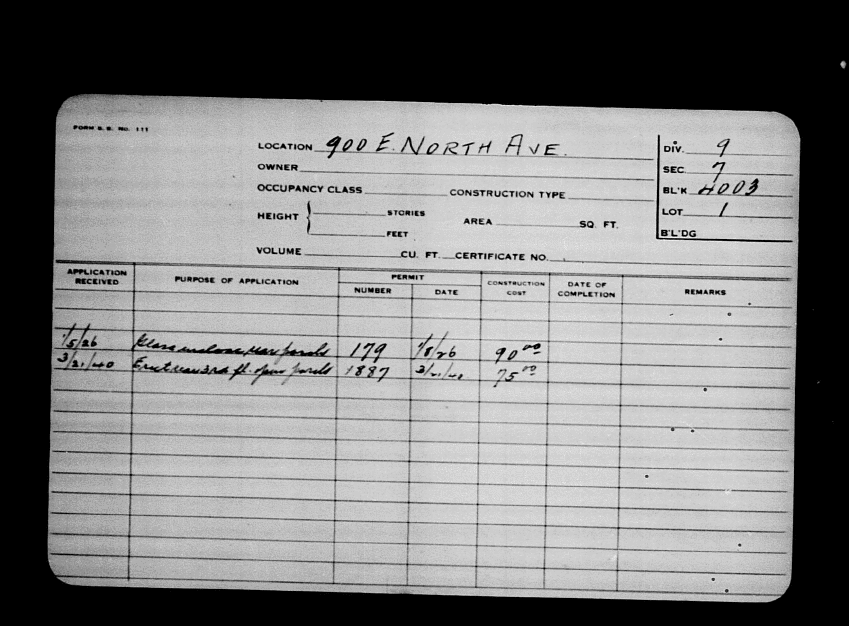 FORM S. B. NO. 111
LOCATION 900 E. NORTH AVE.
OWNER
OCCUPANCY CLASS CONSTRUCTION TYPE
HEIGHT { STORIES
FEET
AREA SQ. FT.
VOLUME CU. FT. CERTIFICATE NO.
DIV. 9
SEC. 7
BL'K 4003
LOT 1
B'L'DG
APPLICATION RECEIVED PURPOSE OF APPLICATION PERMIT NUMBER DATE CONSTRUCTION COST DATE OF COMPLETION REMARKS
1/5/26 Glass enclose rear porch 179 1/8/26 90.00
3/21/40 Erect rear 3rd fl. open porch 1887 3/21/40 75.00